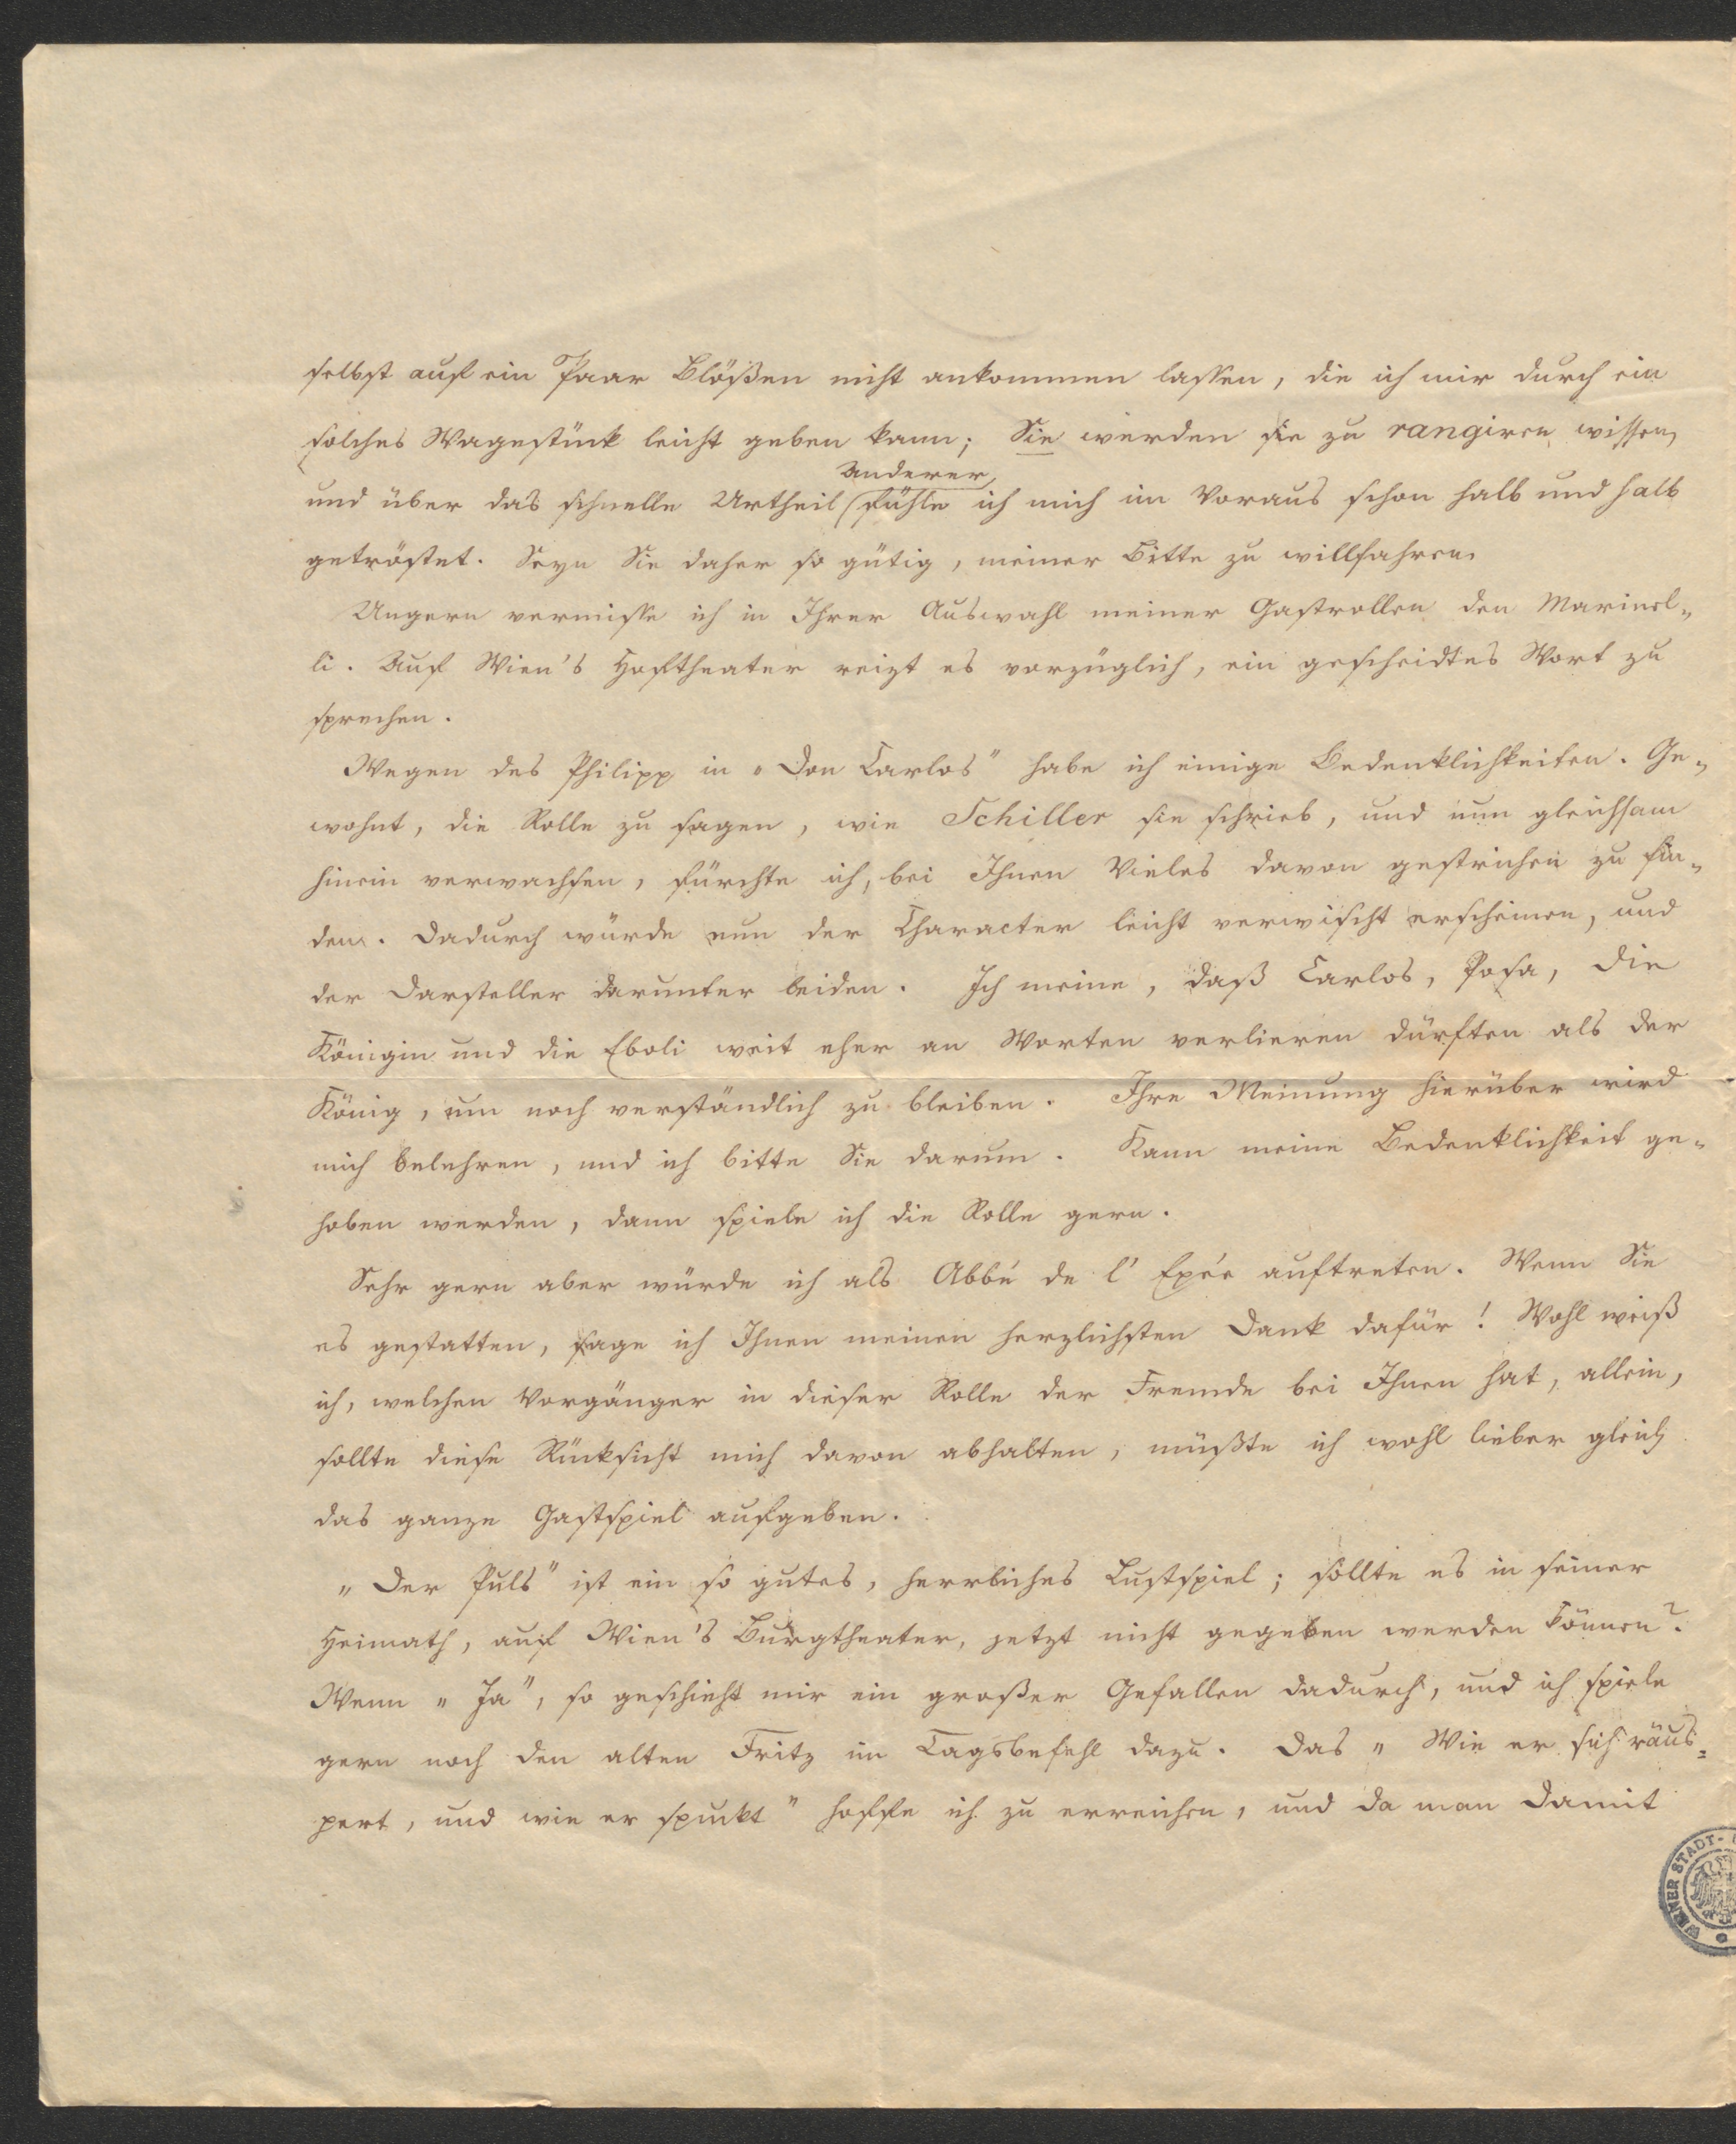 selbst auf ein Paar Blößen nicht ankommen lassen, die ich mir durch ein
solches Wagestück leicht geben kann; Sie werden sie zu rangiren wissen,
Anderer
und über das schnelle Urtheil fühle ich mich im Voraus schon halb und halb
getröstet. Seyn Sie daher so gütig, meiner Bitte zu willfahren.
Ungern vermisse ich in Ihrer Auswahl meiner Gastrollen den Marinel-
li. Auf Wien's Hoftheater reizt es vorzüglich, ein gescheidtes Wort zu
sprechen.
Wegen des Philipp in „Don Carlos" habe ich einige Bedenklichkeiten. Ge-
wohnt, die Rolle zu sagen, wie Schiller sie schrieb, und nun gleichsam
hinein verwachsen, fürchte ich, bei Ihnen Vieles davon gestrichen zu fin-
den. Dadurch würde nun der Character leicht verwischt erscheinen, und
der Darsteller darunter leiden. Ich meine, daß Carlos, Posa, die
Königin und die Eboli weit eher an Worten verlieren dürften als der
König, um noch verständlich zu bleiben. Ihre Meinung hierüber wird
mich belehren, und ich bitte Sie darum. Kann meine Bedenklichkeit ge-
hoben werden, dann spiele ich die Rolle gern.
Sehr gern aber würde ich als Abbé de l' Epée auftreten. Wenn Sie
es gestatten, sage ich Ihnen meinen herzlichsten Dank dafür! Wohl weiß
ich, welchen Vorgänger in dieser Rolle der Fremde bei Ihnen hat, allein,
sollte diese Rücksicht mich davon abhalten, müßte ich wohl lieber gleich
das ganze Gastspiel aufgeben.
„Der Puls" ist ein so gutes, herrliches Lustspiel; sollte es in seiner
Heimath, auf Wien's Burgtheater, jetzt nicht gegeben werden können?
Wenn „Ja", so geschieht mir ein großer Gefallen dadurch, und ich spiele
gern noch den alten Fritz im Tagsbefehl dazu. Das „Wie er sich räus-
pert, und wie er spuckt" hoffe ich zu erreichen, und da man damit
WIENER STADT-